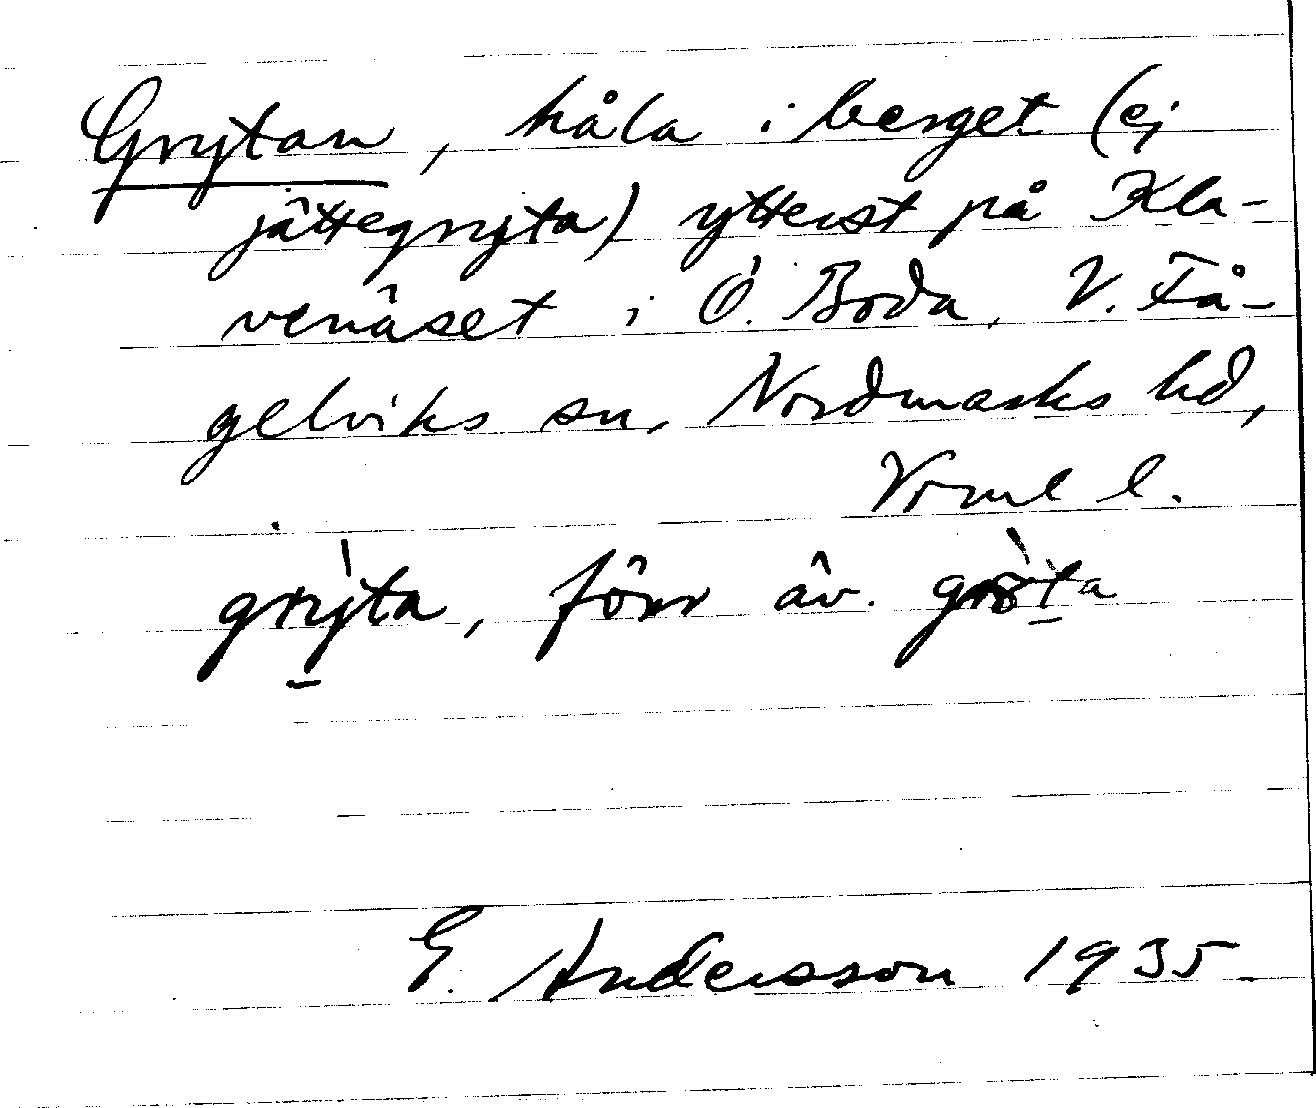 Grytan, håla i berget (ej
jättegryta) ytterst på Kla-
venäset i Ö. Boda, V. Få-
gelviks sn, Nordmarks hd,
Vrml l.
grỳta, förr äv. grö̀ta
E. Andersson 1935